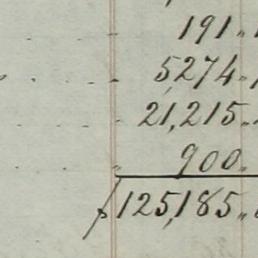 191 "
5274 "
21,215 "
900 "
$125,185 "